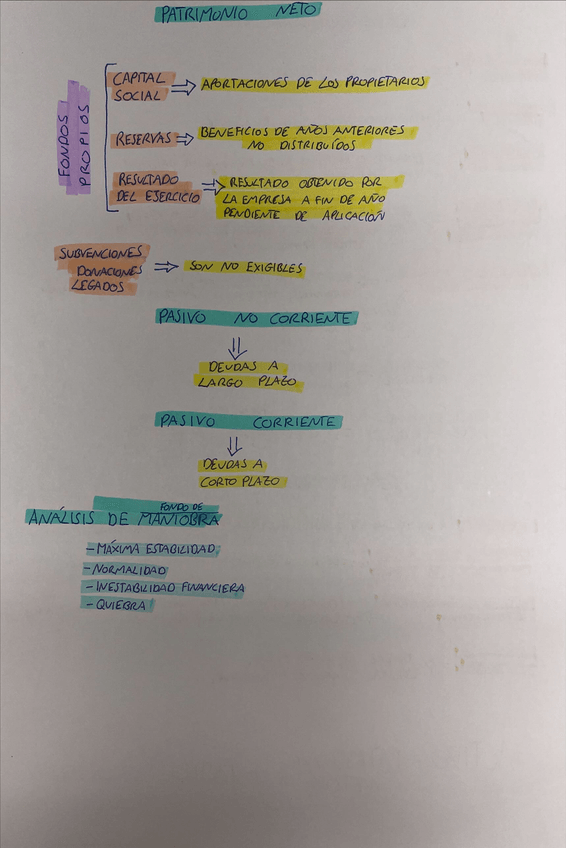 PATRIMONIO NETO
FONDOS
PROPIOS
CAPITAL
SOCIAL
⇒ APORTACIONES DE LOS PROPIETARIOS
RESERVAS ⇒ BENEFICIOS DE AÑOS ANTERIORES
NO DISTRIBUÍDOS
RESULTADO
DEL EJERCICIO
⇒ RESULTADO OBTENIDO POR
LA EMPRESA A FIN DE AÑO
PENDIENTE DE APLICACIÓN
SUBVENCIONES
DONACIONES
LEGADOS
⇒ SON NO EXIGIBLES
PASIVO NO CORRIENTE
⇓
DEUDAS A
LARGO PLAZO
PASIVO CORRIENTE
⇓
DEUDAS A
CORTO PLAZO
FONDO DE
ANÁLISIS DE MANIOBRA
- MÁXIMA ESTABILIDAD
- NORMALIDAD
- INESTABILIDAD FINANCIERA
- QUIEBRA